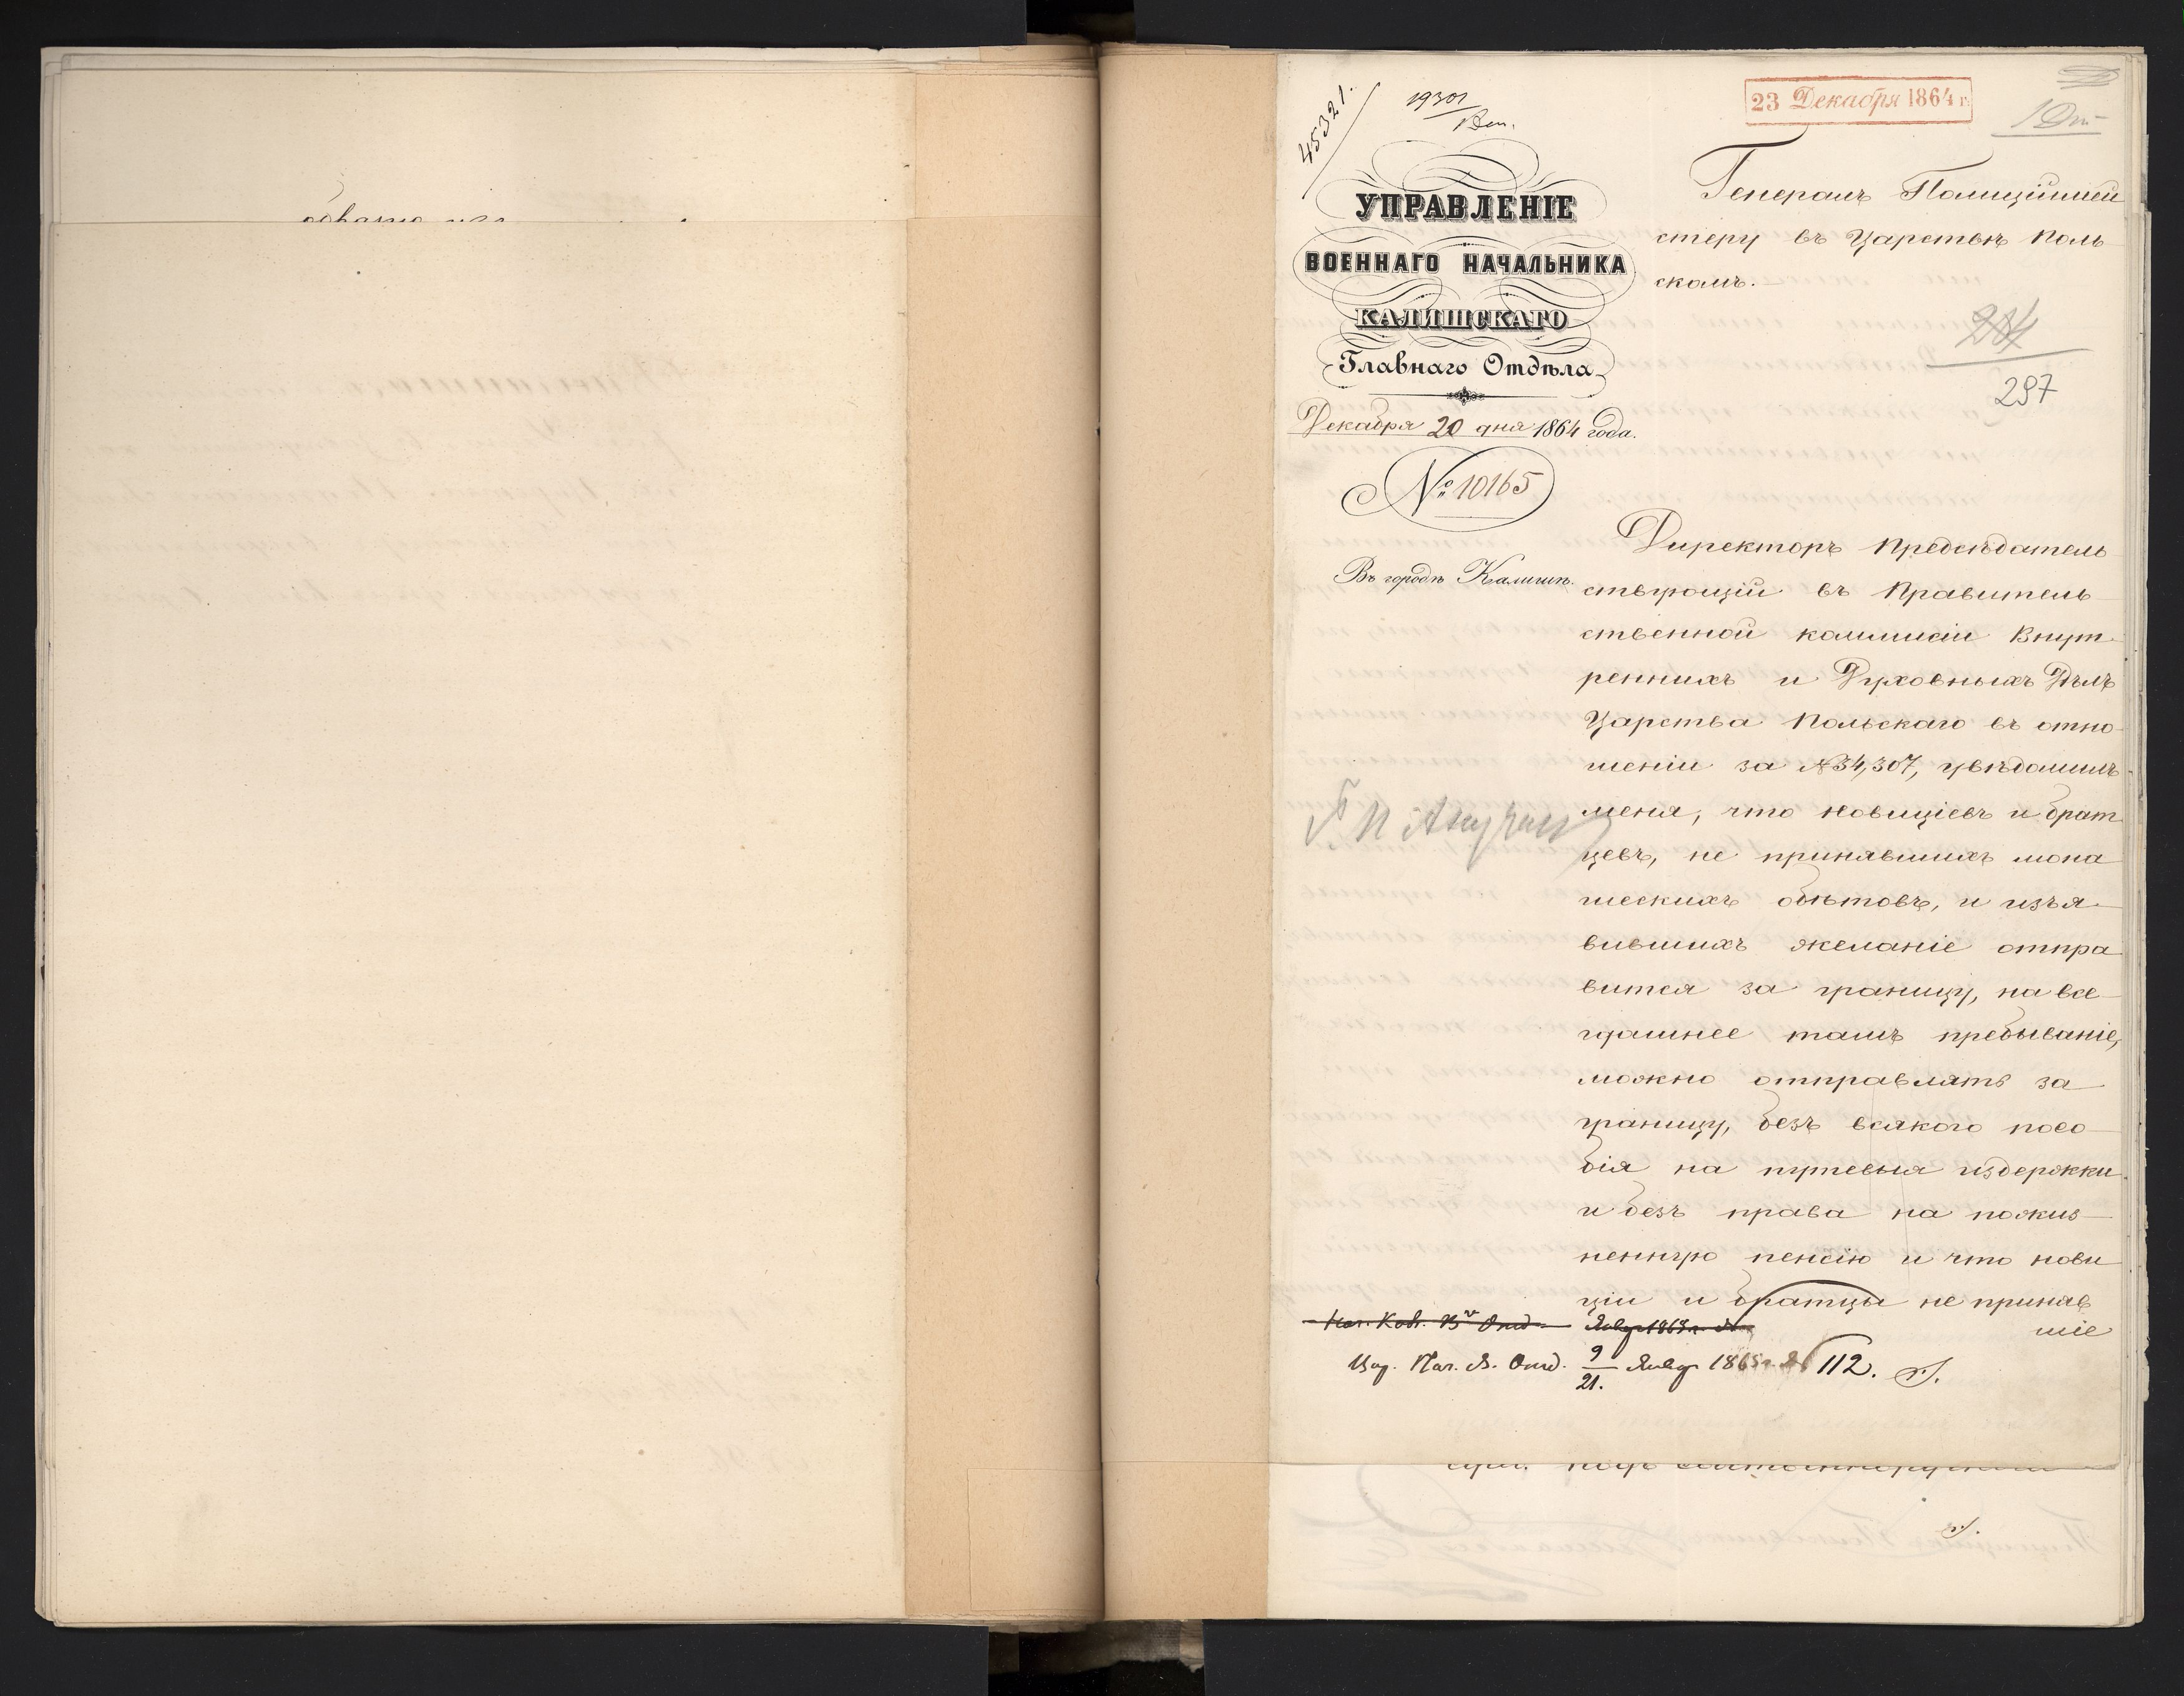 45321.
19301
23 Декабря 1864 г.
УПРАВЛЕНІЕ
ВОЕННАГО НАЧАЛЬНИКА
КАЛИШСКАГО
Главнаго Отдѣла
Декабря 20 дня 1864 года.
№ 10165
Въ городѣ Калишѣ.
Генералъ Полиціймей
стеру въ Царствѣ Поль
скомъ.
297
Директоръ Предсѣдатель
ствующій въ Правитель
ственной коммисіи Внут
реннихъ и Духовныхъ Дѣлъ
Царства Польскаго въ отно
шеніи за №34,307, увѣдомилъ
меня, что новиціевъ и брат
цевъ, не принявшихъ мона
шескихъ обѣтовъ, и изъя
вившихъ желаніе отпра
вится за границу, на все
гдашнее тамъ пребываніе,
можно отправлять за
границу, безъ всякого посо
бія на путевыя издержки
и безъ права на пожиз
ненную пенсію и что нови
ціи и братцы не приняв
шіе
Нач. В. Отд. 9/21. Янвр 1865 г. № 112.